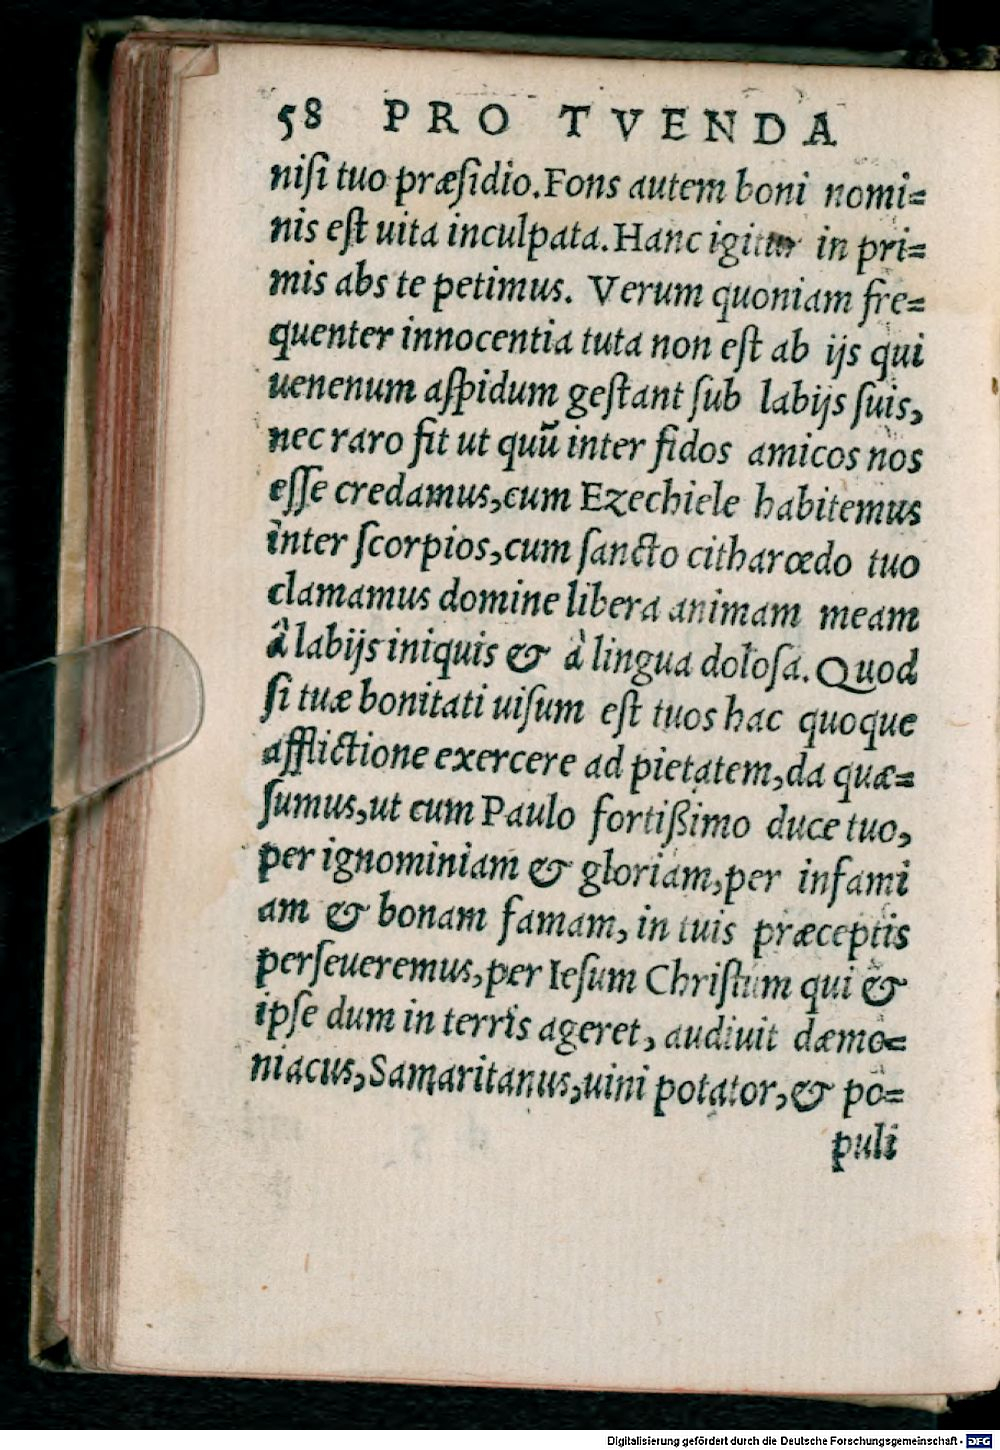 58 PRO TVENDA
niſi tuo præſidio. Fons autem boni nomi=
nis eſt uita inculpata. Hanc igitur in pri=
mis abs te petimus. Verum quoniam fre=
quenter innocentia tuta non eſt ab ijs qui
uenenum aſpidum geſtant ſub labijs ſuis,
nec raro fit ut quū inter fidos amicos nos
eſſe credamus, cum Ezechiele habitemus
inter ſcorpios, cum ſancto citharœdo tuo
clamamus domine libera animam meam
à labijs iniquis & à lingua doloſa. Quod
ſi tuæ bonitati uiſum eſt tuos hac quoque
afflictione exercere ad pietatem, da quæ=
ſumus, ut cum Paulo fortißimo duce tuo,
per ignominiam & gloriam, per infami
am & bonam famam, in tuis præceptis
perſeueremus, per Ieſum Chriſtum qui &
ipſe dum in terris ageret, audiuit dæmo=
niacus, Samaritanus, uini potator, & po=
puli
Digitalisierung gefördert durch die Deutsche Forschungsgemeinschaft - DFG